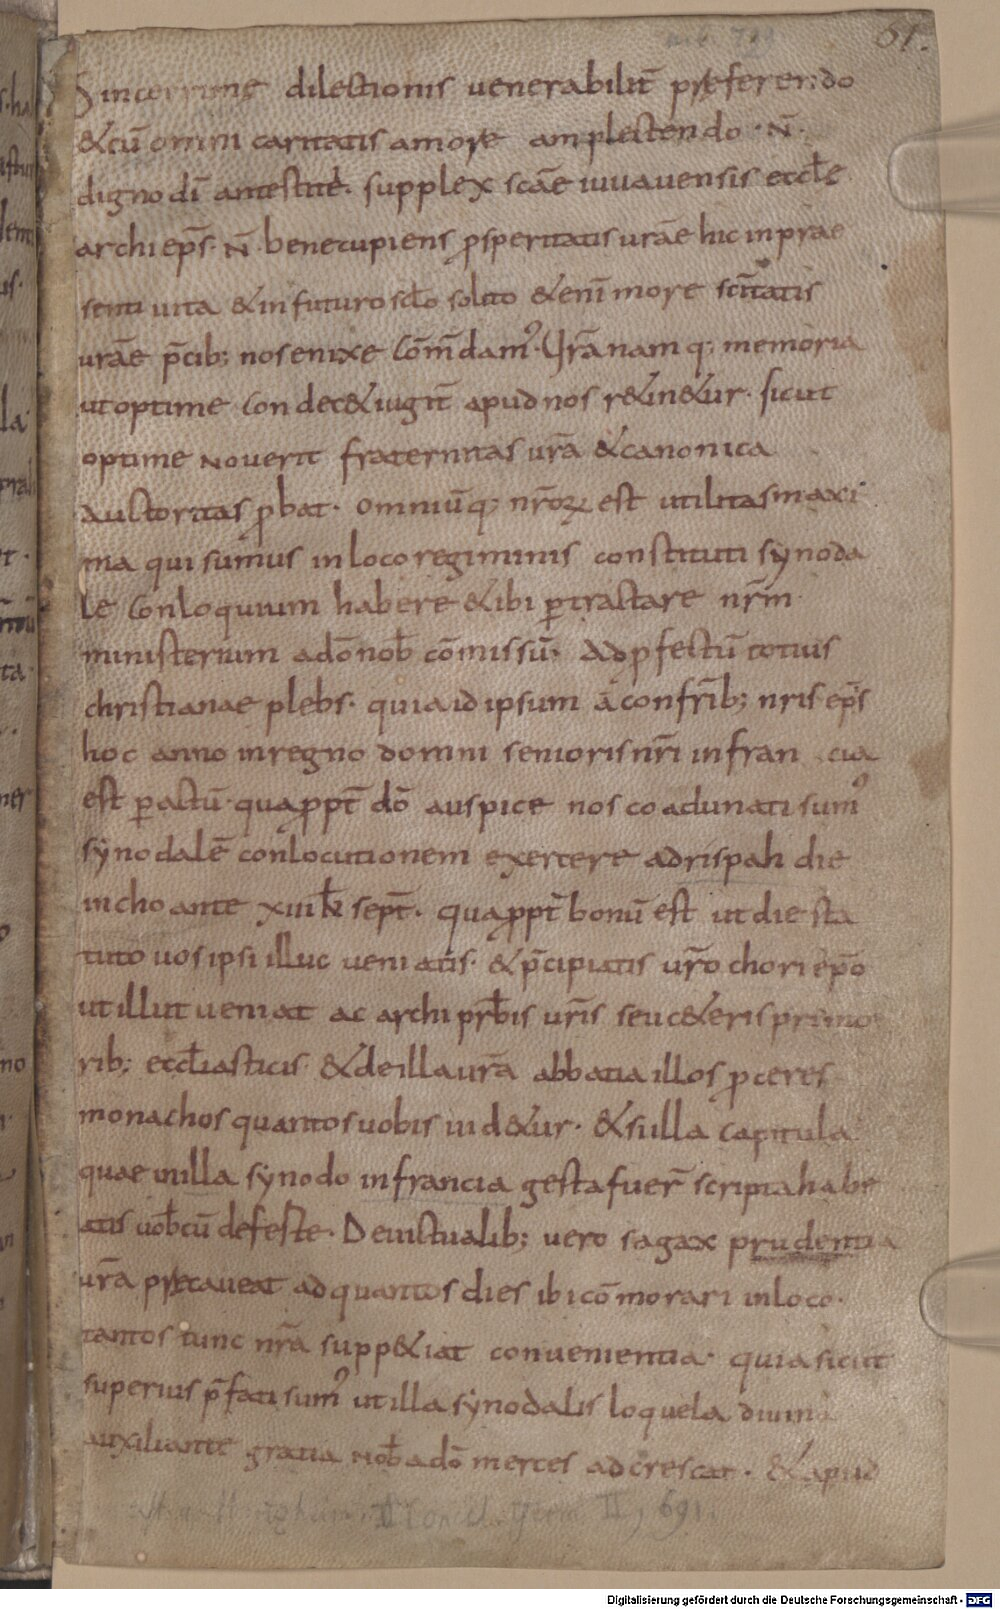 61.
Sincerrime dilectionis venerabilit̄ pręferendo
&cū omni caritatis amore amplectendo · N̄ ·
digno dī antestite · supplex scāe iuuauensis eccłe
archiep̄s · N̄ · benecupiens p̱speritatis urāe hic in prae
senti uita & in futuro scło solito & enī more sc̄itatis
urāe p̄cib; nos enixe com̄damꝰ · Urā namq; memoria
ut optime condec& iugit̄ apud nos r&in&ur · sicut
optime nouerit fraternitas urā & canonica
auctoritas p̱bat · omniūq; nr̄oꝝ est utilitas maxi
ma qui sumus in loco regiminis constituti synoda
le conloquium habere & ibi ꝑtractare nr̄m
ministerium a dō nob̄ cōmissū · Ad ꝓfectū totius
christianae plebs · quia id ipsum a confr̄ib; nris ep̄s
hoc anno in regno domni senioris nr̄i in fran cia
est ꝑactū · quaꝓpt̄ dō auspice nos coadunati sumꝰ
synodalē conlocutionem exercere ad rispah die
inchoante xuii kł sept̄ · quaꝓpt̄ bonū est ut die sta
tuto uos ipsi illuc ueniatis · & p̄cipiatis ur̄o chori ep̄o
ut illut ueniat ac archi prb̄is ur̄is seu c&eris primo
rib; eccłiasticis & de illa urā abbatia illos ꝓceres
monachos quantos uobis uid&ur · & si illa capitula
quae in illa synodo in francia gesta fuer̄ scripta habe
atis uob̄cū defeste · De uictualib; uero sagax prudentia
urā pręcaueat ad quantos dies ibi cōmorari in loco ·
tantos tunc nr̄a supp&iat conuenientia · quia sicut
superius p̄fati sumꝰ ut illa synodalis loquela diuina
auxiliante gratia nob̄ a dō merces adcrescat · & apud
II, 691.
Digitalisierung gefördert durch die Deutsche Forschungsgemeinschaft - DFG